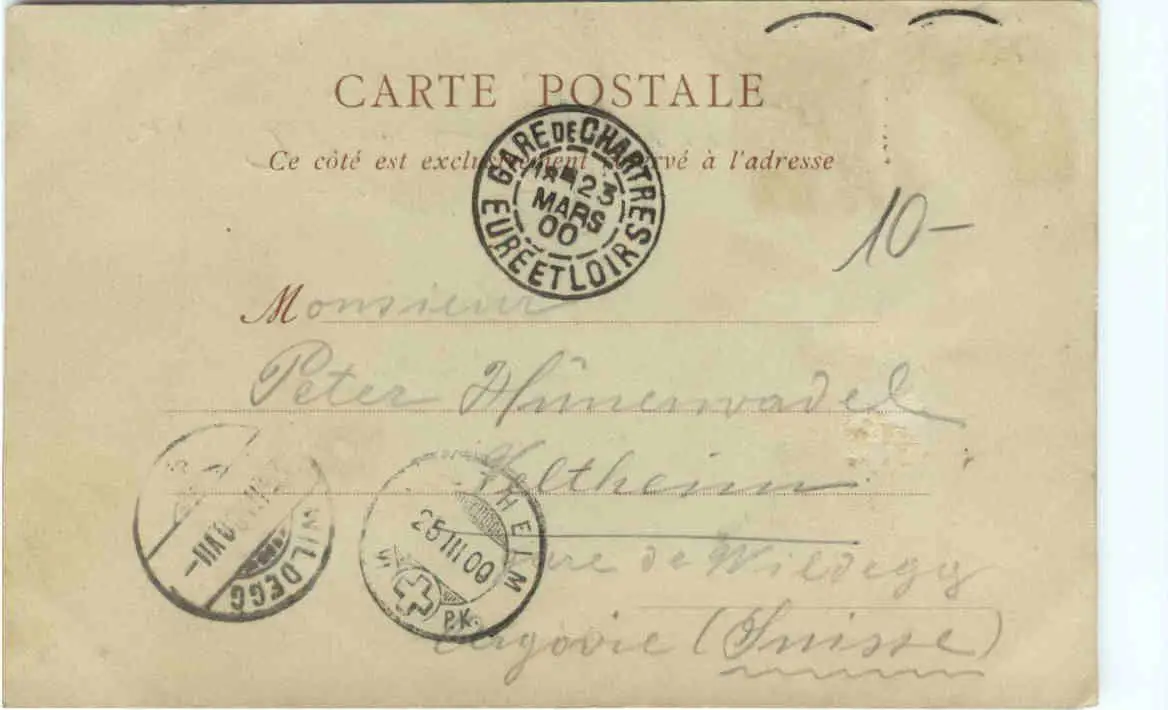 CARTE POSTALE
Ce côté est exclusivement réservé à l'adresse
GARE DE CHARTRES
23
MARS
00
EURE ET LOIR
10-
Monsieur
Peter Hünerwadel
Veltheim
Gare de Wildegg
Argovie (Suisse)
WILDEGG
HEIM
25 III 00